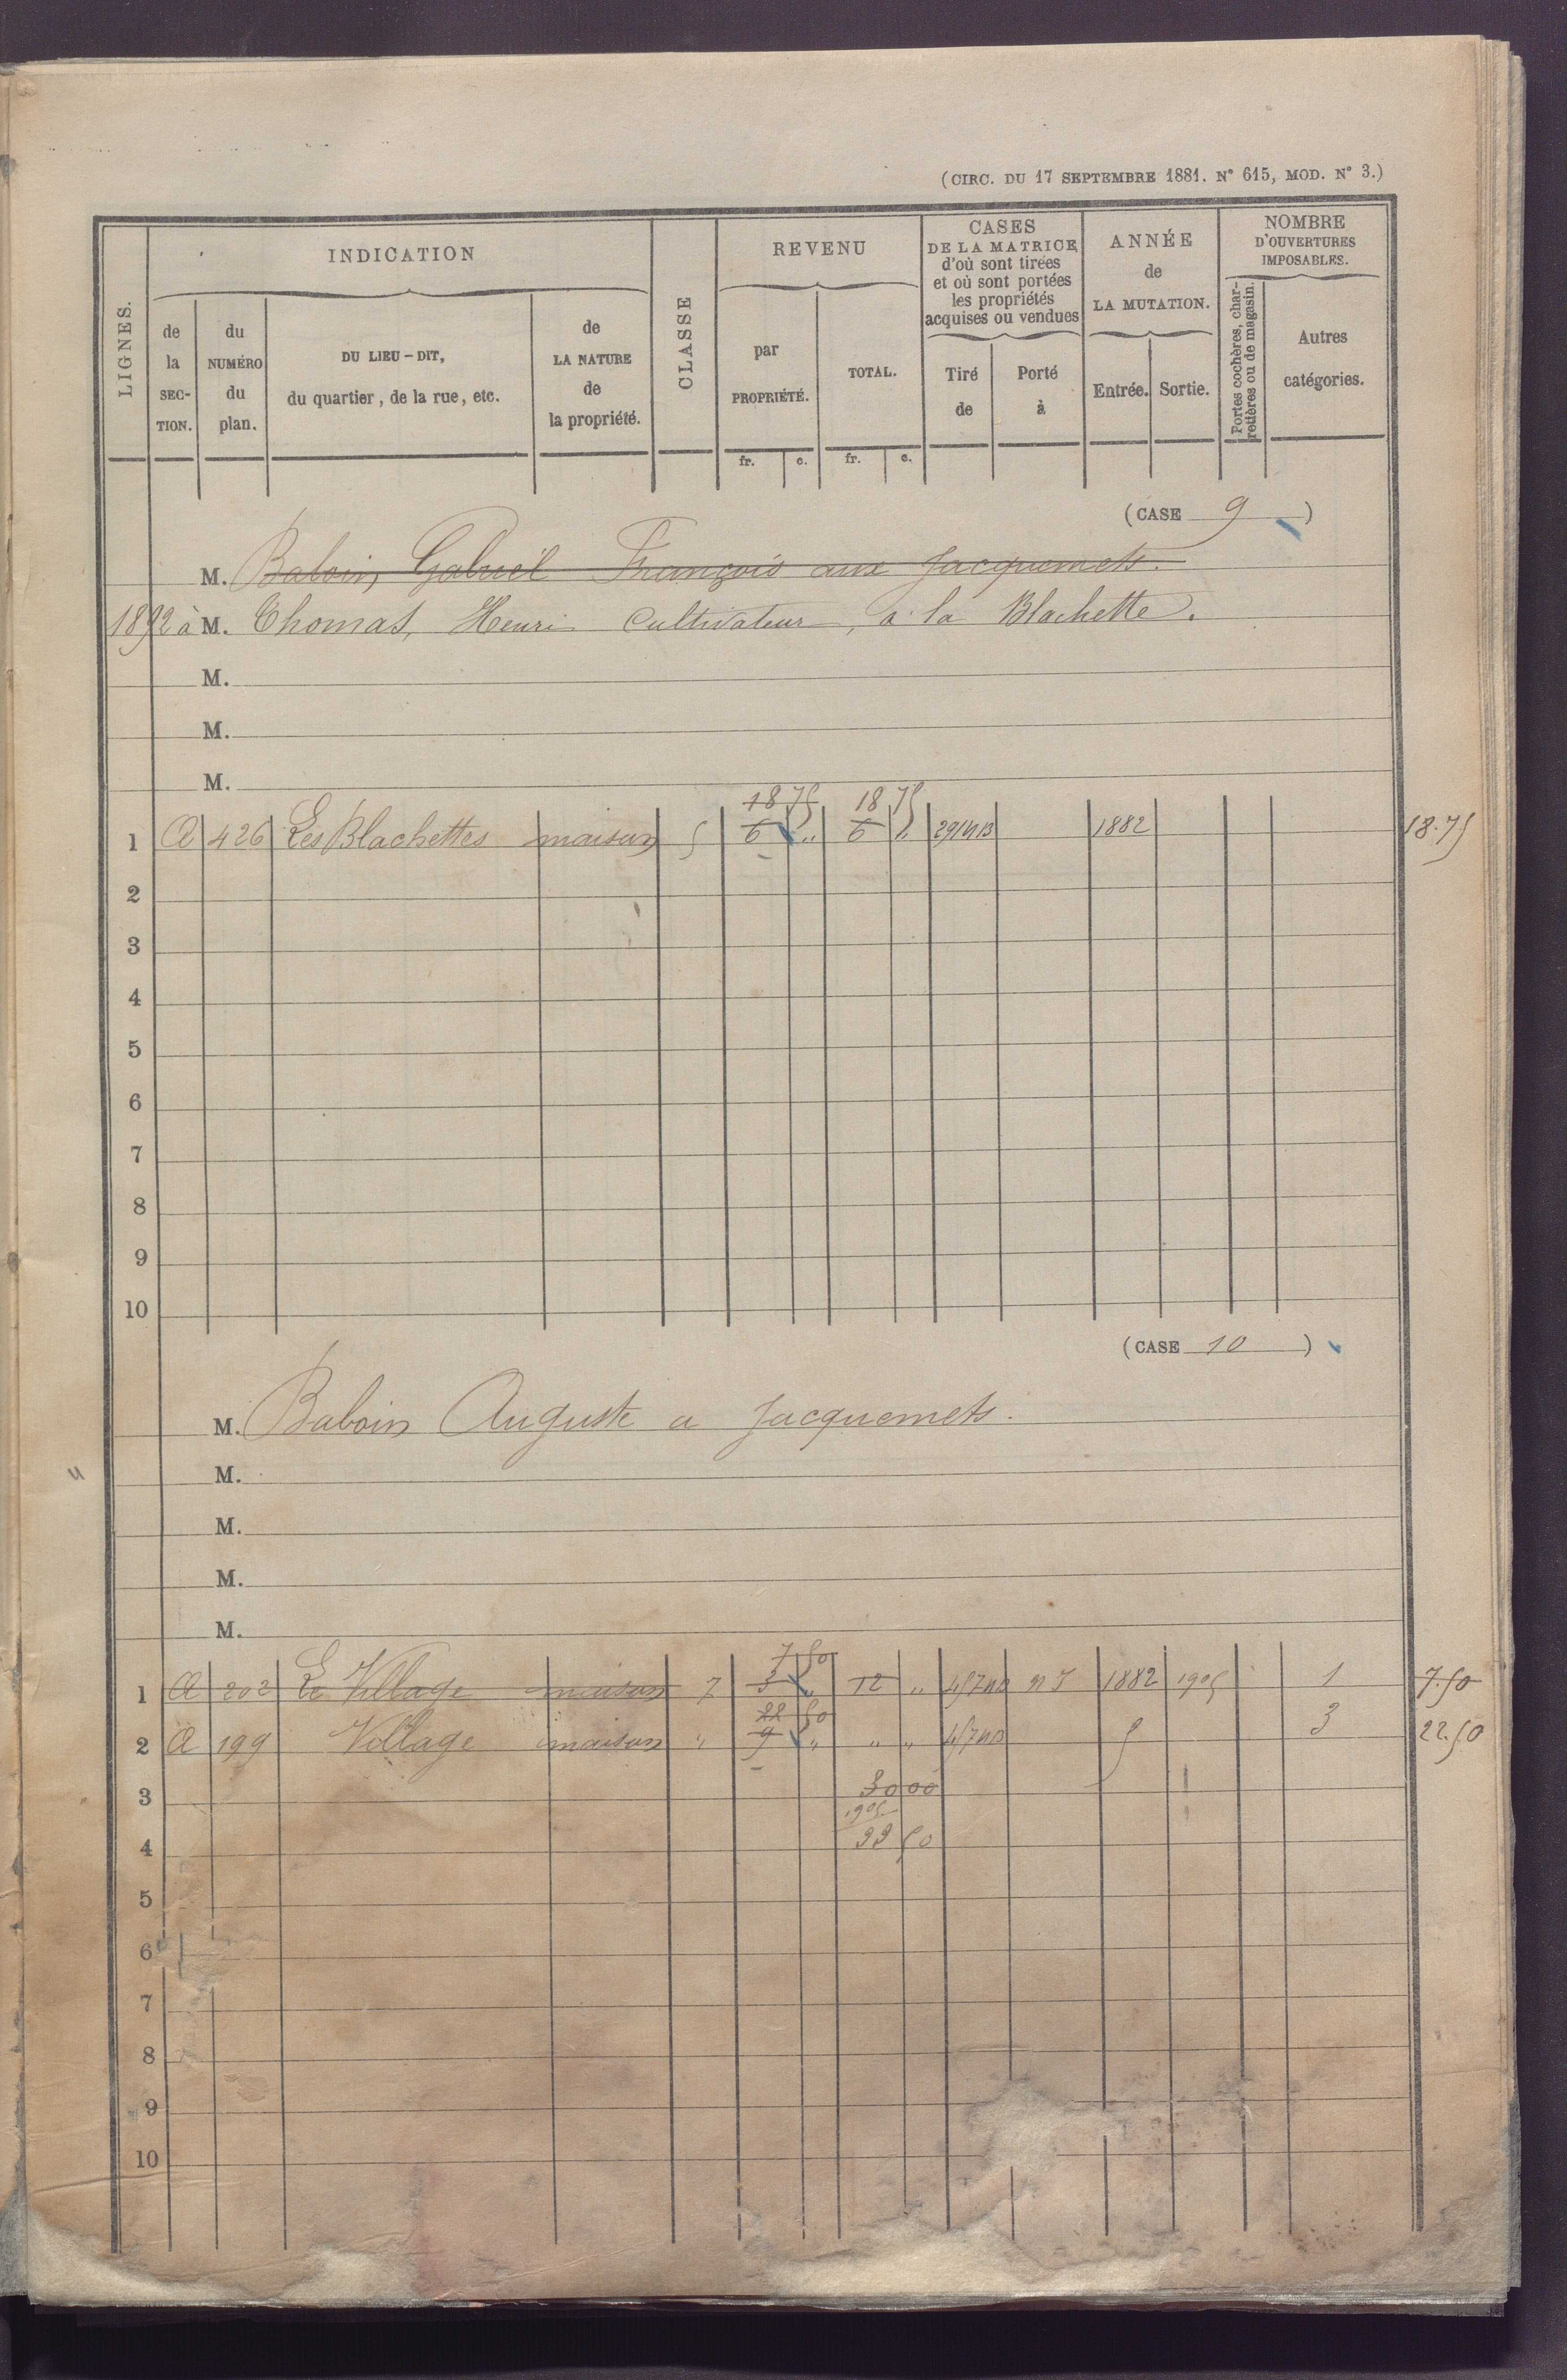 (CIRC. DU 17 SEPTEMBRE 1881. N° 615, MOD. N° 3.)
LIGNES.
INDICATION
de la SECTION.
du NUMÉRO du plan.
DU LIEU-DIT, du quartier, de la rue, etc.
de LA NATURE de la propriété.
CLASSE
REVENU
par PROPRIÉTÉ.
TOTAL.
CASES DE LA MATRICE d'où sont tirées et où sont portées les propriétés acquises ou vendues
Tiré de
Porté à
ANNÉE de LA MUTATION.
Entrée.
Sortie.
NOMBRE D'OUVERTURES IMPOSABLES.
Portes cochères, charretières ou de magasin.
Autres catégories.
fr. c. fr. c.
(CASE 9)
M. Baboin, Gabriel François aux Jacquemets.
1892 à M. Thomas, Henri Cultivateur, à la Blachette.
M.
M.
M.
18 75 18 75
1 A 426 Les Blachettes maison 5 6 " 6 " 1882 18.75
2
3
4
5
6
7
8
9
10
(CASE 10)
M. Baboin Auguste a Jacquemets.
M.
M.
M.
M.
7 50
1 A 202 Le Village maison 7 3 " 12 " 1882 1905 1 7.50
22 50
2 A 199 Village maison " 9 " " " 3 22.50
3 30 00
1905
4 50
5
6
7
8
9
10